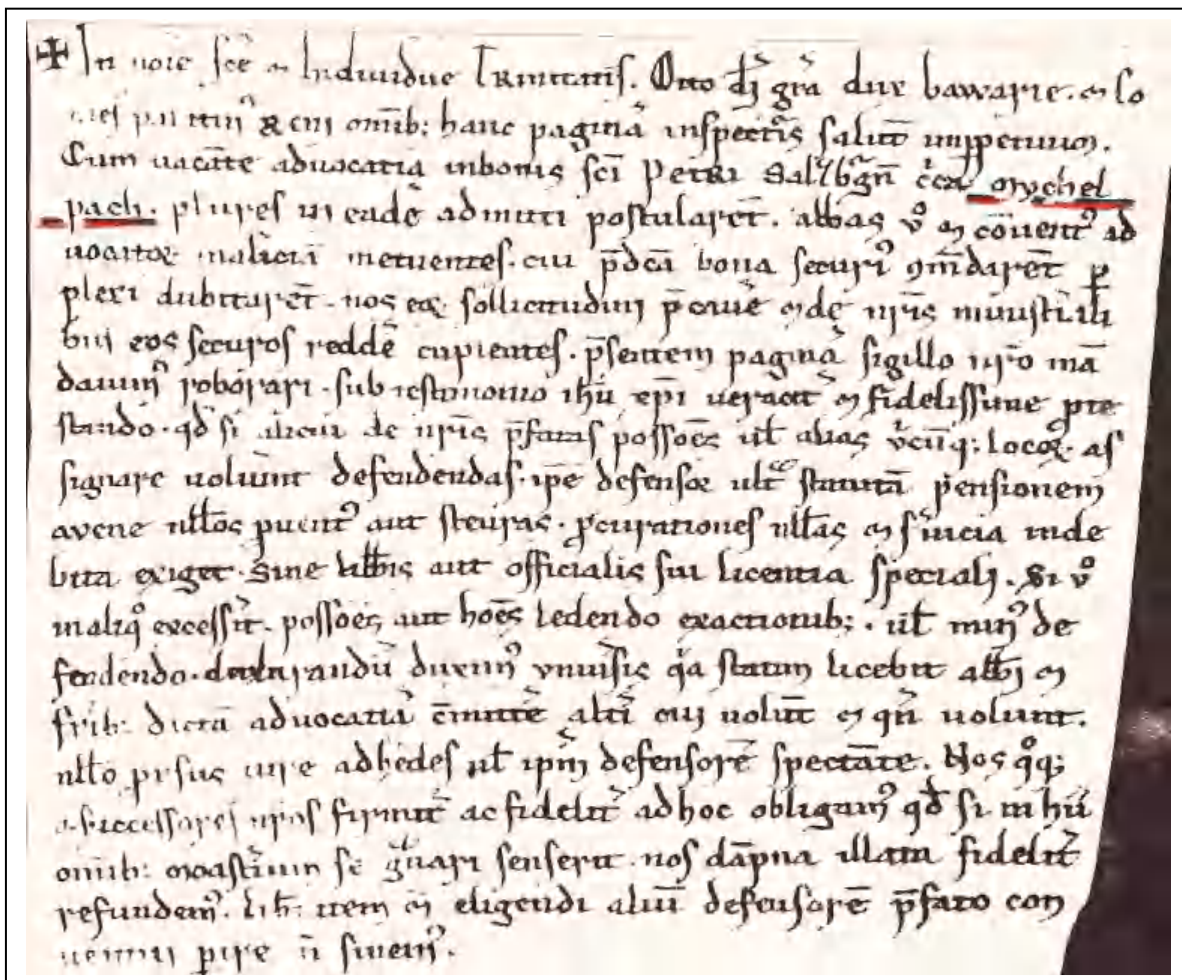 ✠ In noīe sc̄e ⁊ Indiuidue Trinitatis. Otto dī gr̄a dux bawarie. ⁊ co
mes palatin⁹ Reni omīb; hanc paginā inspectur̄s salutē imꝑpetuum.
Cum uacāte aduocatia inbonis sc̄i Petri Salzb̄gn̄ circa mychel
pach. plures in eadē admitti postularēt. abbas v̊ ⁊ cōuent⁹ ad
uocatoꝝ maliciā metuentes. cui p̄dc̄a bona securi⁹ ꝯmīdarēt ꝑ
plexi dubitarēt. nos eoꝝ sollicitudini p̄cauē ⁊ de nr̄is ministiali
bus eos securos reddē cupientes. p̄sentem paginā sigillo nr̄o mā
dauim⁹ roborari. sub testimonio ih̄u xp̄i ueracit̄ ⁊ fidelissime pre
stando. qd̄ si alicui de nr̄is p̄fatas possōes ul̄ alias vt̓cūq; locoꝝ as
signare uolūint defendendas. ip̄e defensor ult̄ statutā pensionem
avene nll̄os puent⁹ aut steuras. ꝓcurationes nll̄as ⁊ s̓uicia inde
bita exiget. Sine abb̄is aut officialis sui licentia speciali. Si v̊
in aliq̊ excess̓it. possōes aut hoīes ledendo exactionib;. ul̄ min⁹ de
fendendo. declarandū duxim⁹ vniuisis qa statim licebit abb̄i ⁊
fr̄ib; dictā aduocatiā cōmittē alt̓i cui uolūt ⁊ qn̄ uolunt.
nll̄o prsus iure adhēdes ul̄ ip̄m defensorē spectāte. Nos q̊q;
⁊ successores nr̄os firmit̄ ac fidelit̄ ad hoc obligam⁹ qd̄ si in hiis
omīb; monast̓ium se g̓uari senserit. nos dāpna illata fidelit̓
refundem⁹. lib̄tatem ⁊ eligendi aliū defensorē p̄fato con
uentui ꝑire n̄ sinem⁹.